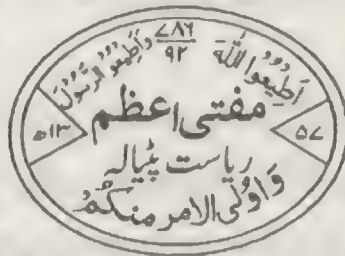 ۷۸۶
۹۲
اَطِیعُوا اللّٰهَ وَاَطِیعُوا الرَّسُوْلَ
مفتی اعظم
۱۳ھ ۵۷
ریاست پٹیالہ
وَاُولِی الامر منکُمْ